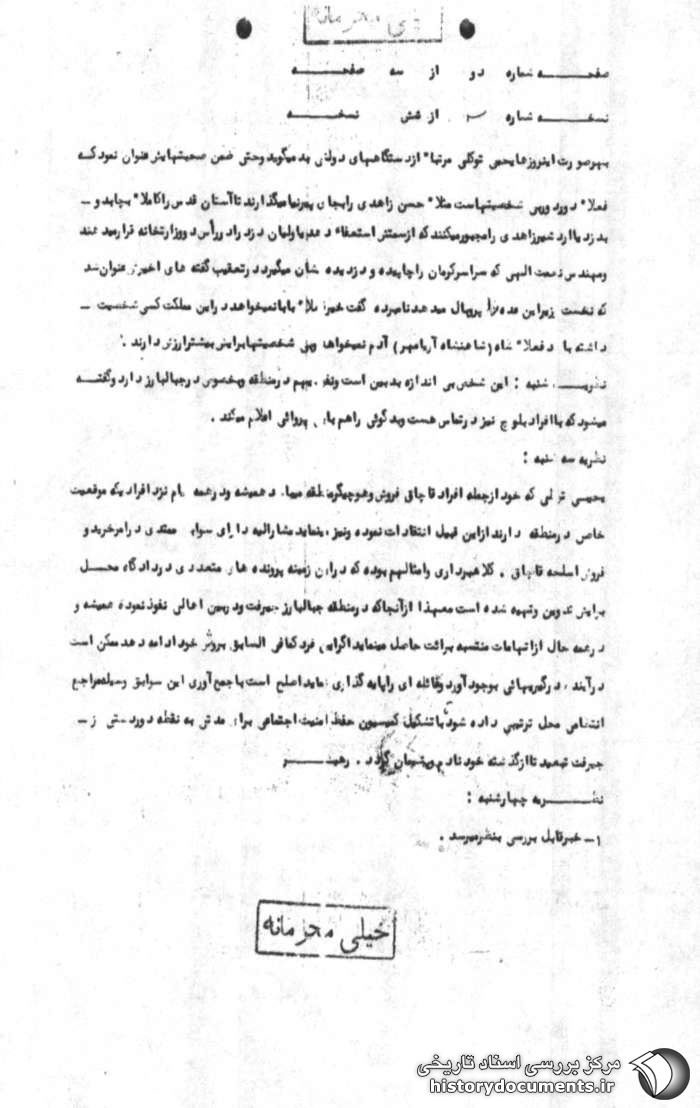 خیلی محرمانه
صفحه شماره دو از سه صفحه
نسخه شماره از شش نسخه
بهرصورت اینروزها یحیی توکلی مرتباً از دستگاههای دولتی بد میگوید وحتی ضمن صحبتهایش عنوان نمود که
فعلاً دوره شخصیتهاست مثلاً حسن زاهدی رابجای پیرنیا میگذارند تا آستان قدس را کاملاً بچاپد و -
بدزدد یا اردشیر زاهدی را مجبور میکنند که از سمتش استعفاء دهد یا ولیان دزد را در رأس دو وزارتخانه قرار میدهند
ومهندس نعمت الهی که سراسر کرمان را چاپیده و دزدیده نشان میگیرد در تعقیب گفته های اخیرش عنوان شد
که نخست وزیر این عده را پروبال میدهد نامبرده گفت خیر اعلا بابا نمیخواهد در این مملکت کسی شخصیت -
داشته باشد فعلاً شاه (شاهنشاه آریامهر) آدم نمیخواهد شخصیتها برایش بیشتر ارزش دارند .
نظریه شنبه : این شخص بی اندازه بدبین است ونفوذ مهم در منطقه وبخصوص در جبالبارز دارد وگفته
میشود که با افراد بلوچ نیز در تماس هست وبدگوئی را هم با بی پروائی اعلام میکند .
نظریه سه شنبه :
یحیی توکلی که خود از جمله افراد قاچاق فروش وهوچیگر منطقه میباشد همیشه ودر همه نزد افرادیکه موقعیت
خاص در منطقه دارند از این قبیل انتقادات نموده ونیز مینماید مشارالیه دارای سوابق ممتدی در امر خرید و
فروش اسلحه قاچاق . کلاهبرداری وامثالهم بوده که در این زمینه پرونده های متعددی در دادگاه محل
برایش تدوین وتهیه شده است معهذا از آنجا که در منطقه جبالبارز جیرفت ودر بین اهالی نفوذ نموده همیشه و
در همه حال از اتهامات منتسبه برائت حاصل مینماید اگر این فرد کمافی السابق بروش خود ادامه دهد ممکن است
در آینده درگیریهائی بوجود آورد وغائله ای را پایه گذاری نماید اصلح است با جمع آوری این سوابق وسیله مراجع
انتظامی محل ترتیبی داده شود با تشکیل کمیسیون حفظ امنیت اجتماعی برای مدتی به نقطه دوردستی از -
جیرفت تبعید تا از گذشته خود نادم وپشیمان گردد . رهبر
نظریه چهارشنبه :
۱- خبر قابل بررسی بنظر میرسد .
خیلی محرمانه
مرکز بررسی اسناد تاریخی
historydocuments.ir